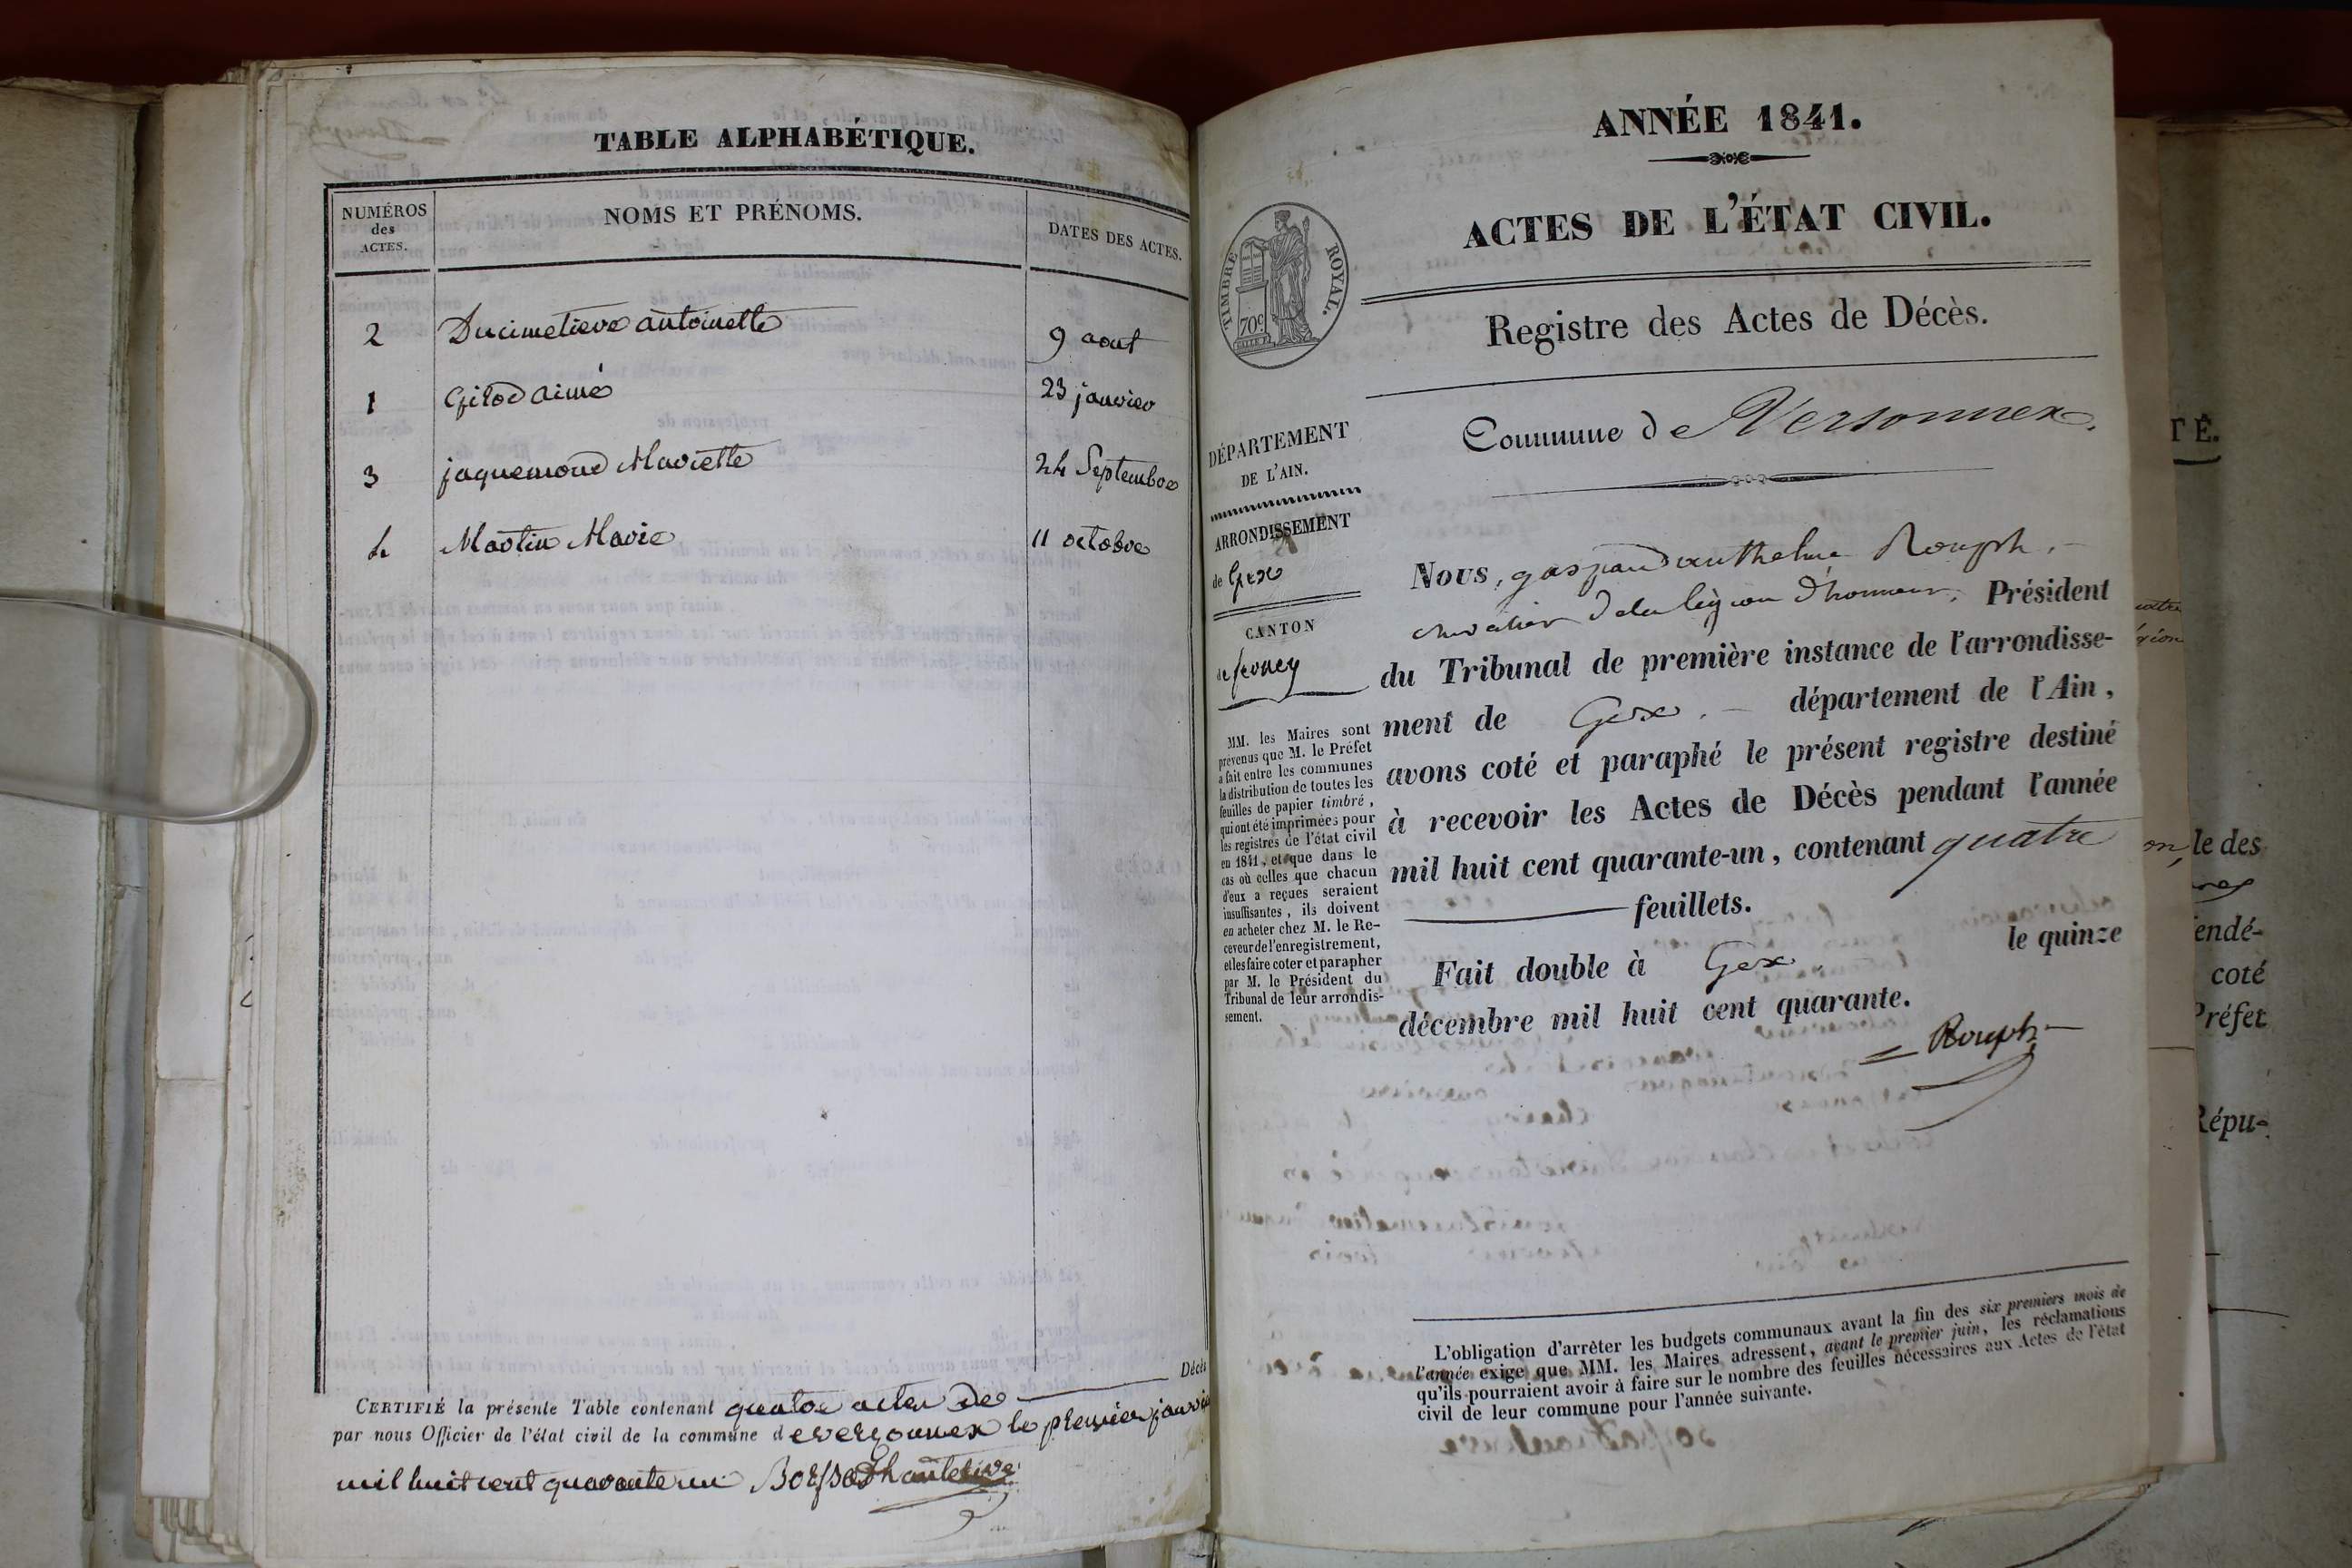 TABLE ALPHABÉTIQUE.
NUMÉROS
des
ACTES.
NOMS ET PRÉNOMS.
DATES DES ACTES.
2 Ducimetiere antoinette 9 aout
1 Girod aimé 23 janvier
3 jaquemond Mariette 24 Septembre
4 Martin Marie 11 octobre
Décès
CERTIFIÉ la présente Table contenant quatre actes de
par nous Officier de l'état civil de la commune de versonnex le premier janvier
mil huit cent quarante un
ANNÉE 1841.
ACTES DE L'ÉTAT CIVIL.
TIMBRE ROYAL.
70c.
Registre des Actes de Décès.
Commune de Versonnex.
DÉPARTEMENT
DE L'AIN.
ARRONDISSEMENT
de Gex
CANTON
de ferney
MM. les Maires sont
prévenus que M. le Préfet
a fait entre les communes
la distribution de toutes les
feuilles de papier timbré,
qui ont été imprimées pour
les registres de l'état civil
en 1841, et que dans le
cas où celles que chacun
d'eux a reçues seraient
insuffisantes, ils doivent
en acheter chez M. le Re-
ceveur de l'enregistrement,
et les faire coter et parapher
par M. le Président du
Tribunal de leur arrondis-
sement.
Nous, gaspard anthelme Rouph,
chevalier de la légion d'honneur, Président
du Tribunal de première instance de l'arrondisse-
ment de Gex. département de l'Ain,
avons coté et paraphé le présent registre destiné
à recevoir les Actes de Décès pendant l'année
mil huit cent quarante-un, contenant quatre
feuillets.
Fait double à Gex. le quinze
décembre mil huit cent quarante.
Rouph
L'obligation d'arrêter les budgets communaux avant la fin des six premiers mois de
l'année exige que MM. les Maires adressent, avant le premier juin, les réclamations
qu'ils pourraient avoir à faire sur le nombre des feuilles nécessaires aux Actes de l'état
civil de leur commune pour l'année suivante.
TÉ.
le des
endé-
coté
Préfet
Répu-